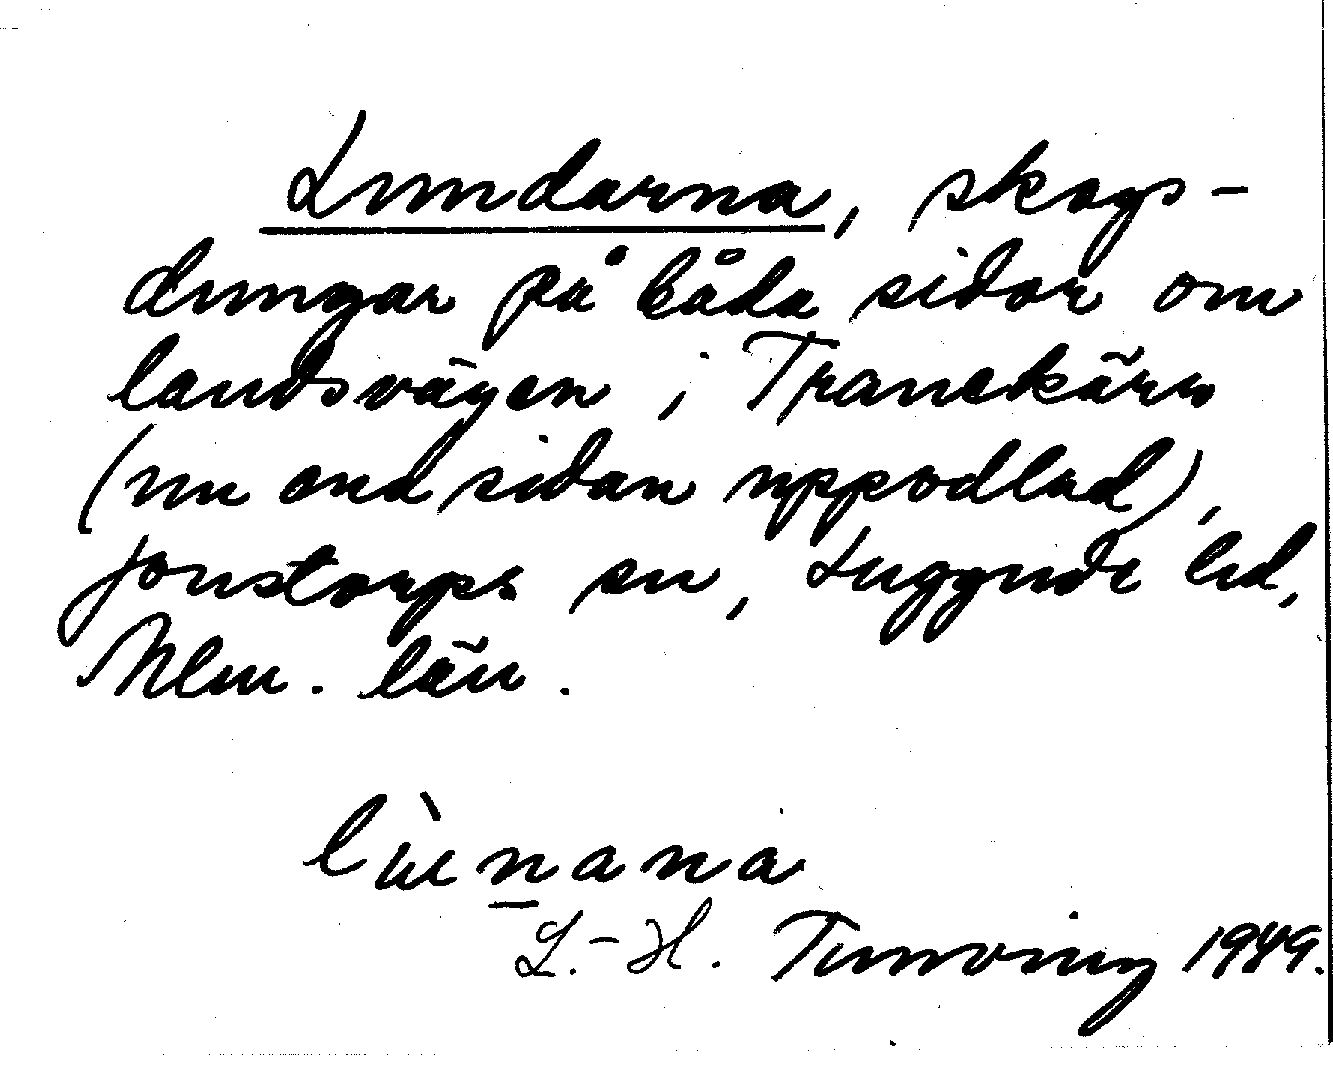 Lundarna, skogs-
dungar på båda sidor om
landsvägen i Tranekärr
(nu ena sidan uppodlad),
Jonstorps sn, Luggude hd,
Mlm. län.
lu̇nana
L.-H. Tunving 1949.